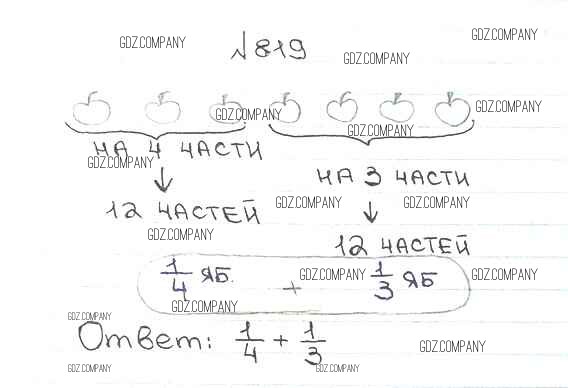 GDZ.COMPANY
GDZ.COMPANY
№819
GDZ.COMPANY
GDZ.COMPANY
GDZ.COMPANY
GDZ.COMPANY
НА 4 ЧАСТИ
GDZ.COMPANY
НА 3 ЧАСТИ
GDZ.COMPANY
GDZ.COMPANY
12 ЧАСТЕЙ
GDZ.COMPANY
12 ЧАСТЕЙ
1/4 ЯБ. + 1/3 ЯБ
GDZ.COMPANY
GDZ.COMPANY
GDZ.COMPANY
GDZ.COMPANY
Ответ: 1/4 + 1/3
GDZ.COMPANY
GDZ.COMPANY
GDZ.COMPANY